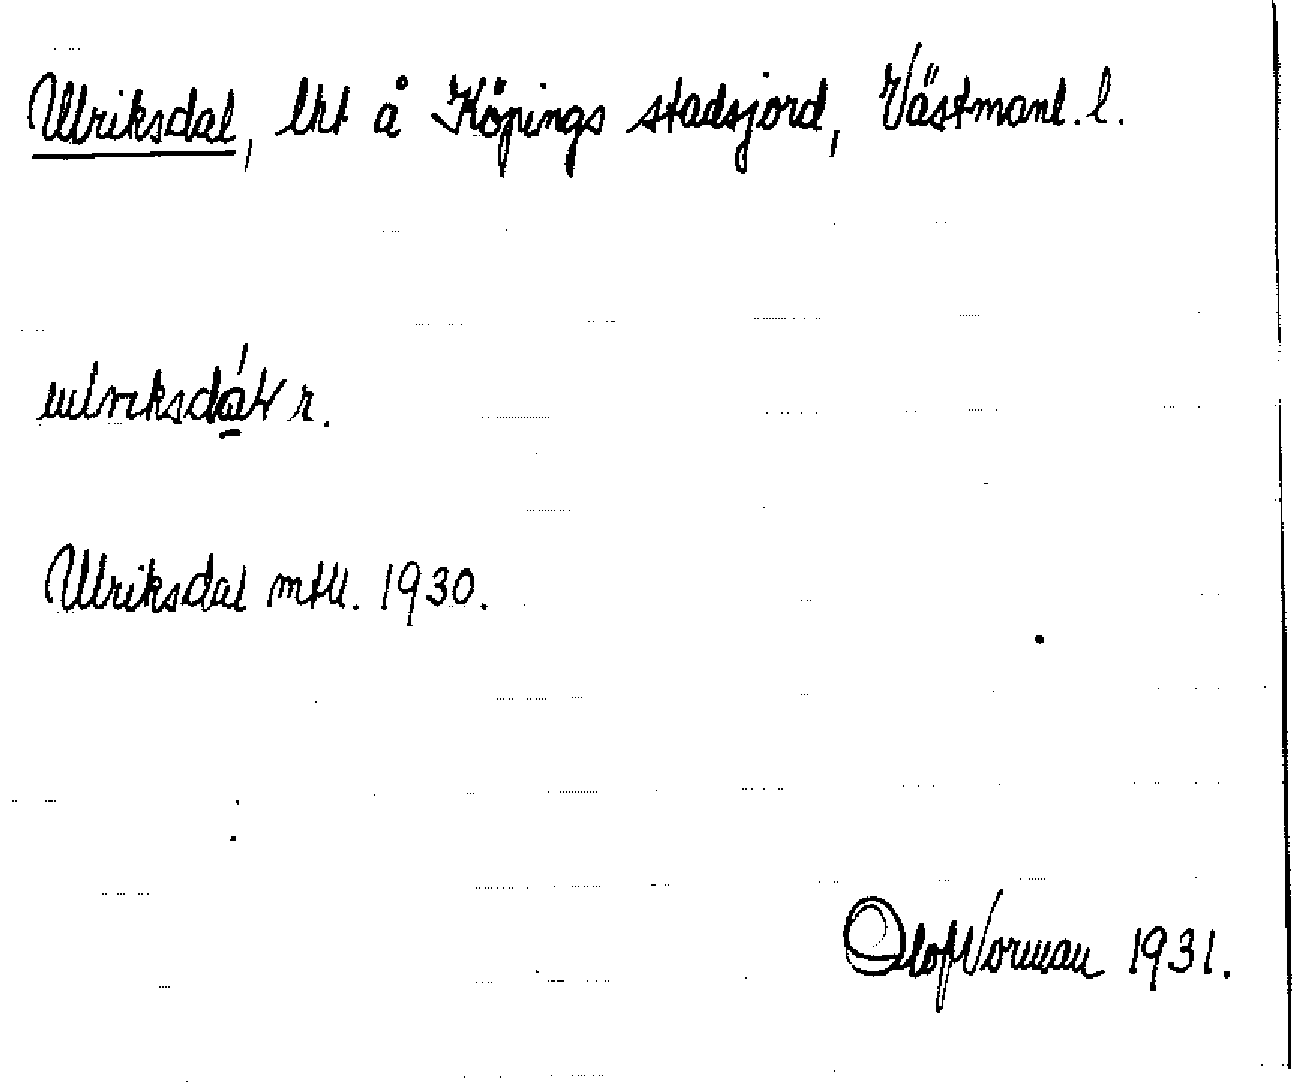 Ulriksdal, lht å Köpings stadsjord, Västmanl. l.
r.
Ulriksdal mtll. 1930.
Olof Norman 1931.